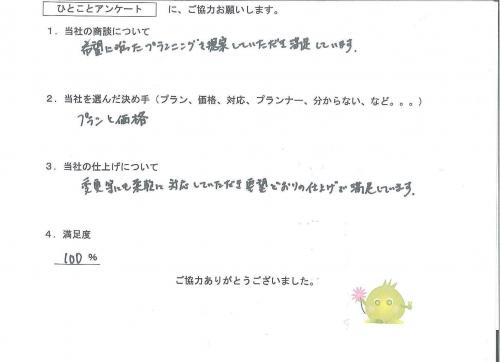 ひとことアンケート に、ご協力お願いします。
1．当社の商談について
希望に沿ったプランニングを提案していただき満足しています。
2．当社を選んだ決め手（プラン、価格、対応、プランナー、分からない、など。。。）
プランと価格
3．当社の仕上げについて
変更等にも柔軟に対応していただき要望どおりの仕上げで満足しています。
4．満足度
100 %
ご協力ありがとうございました。